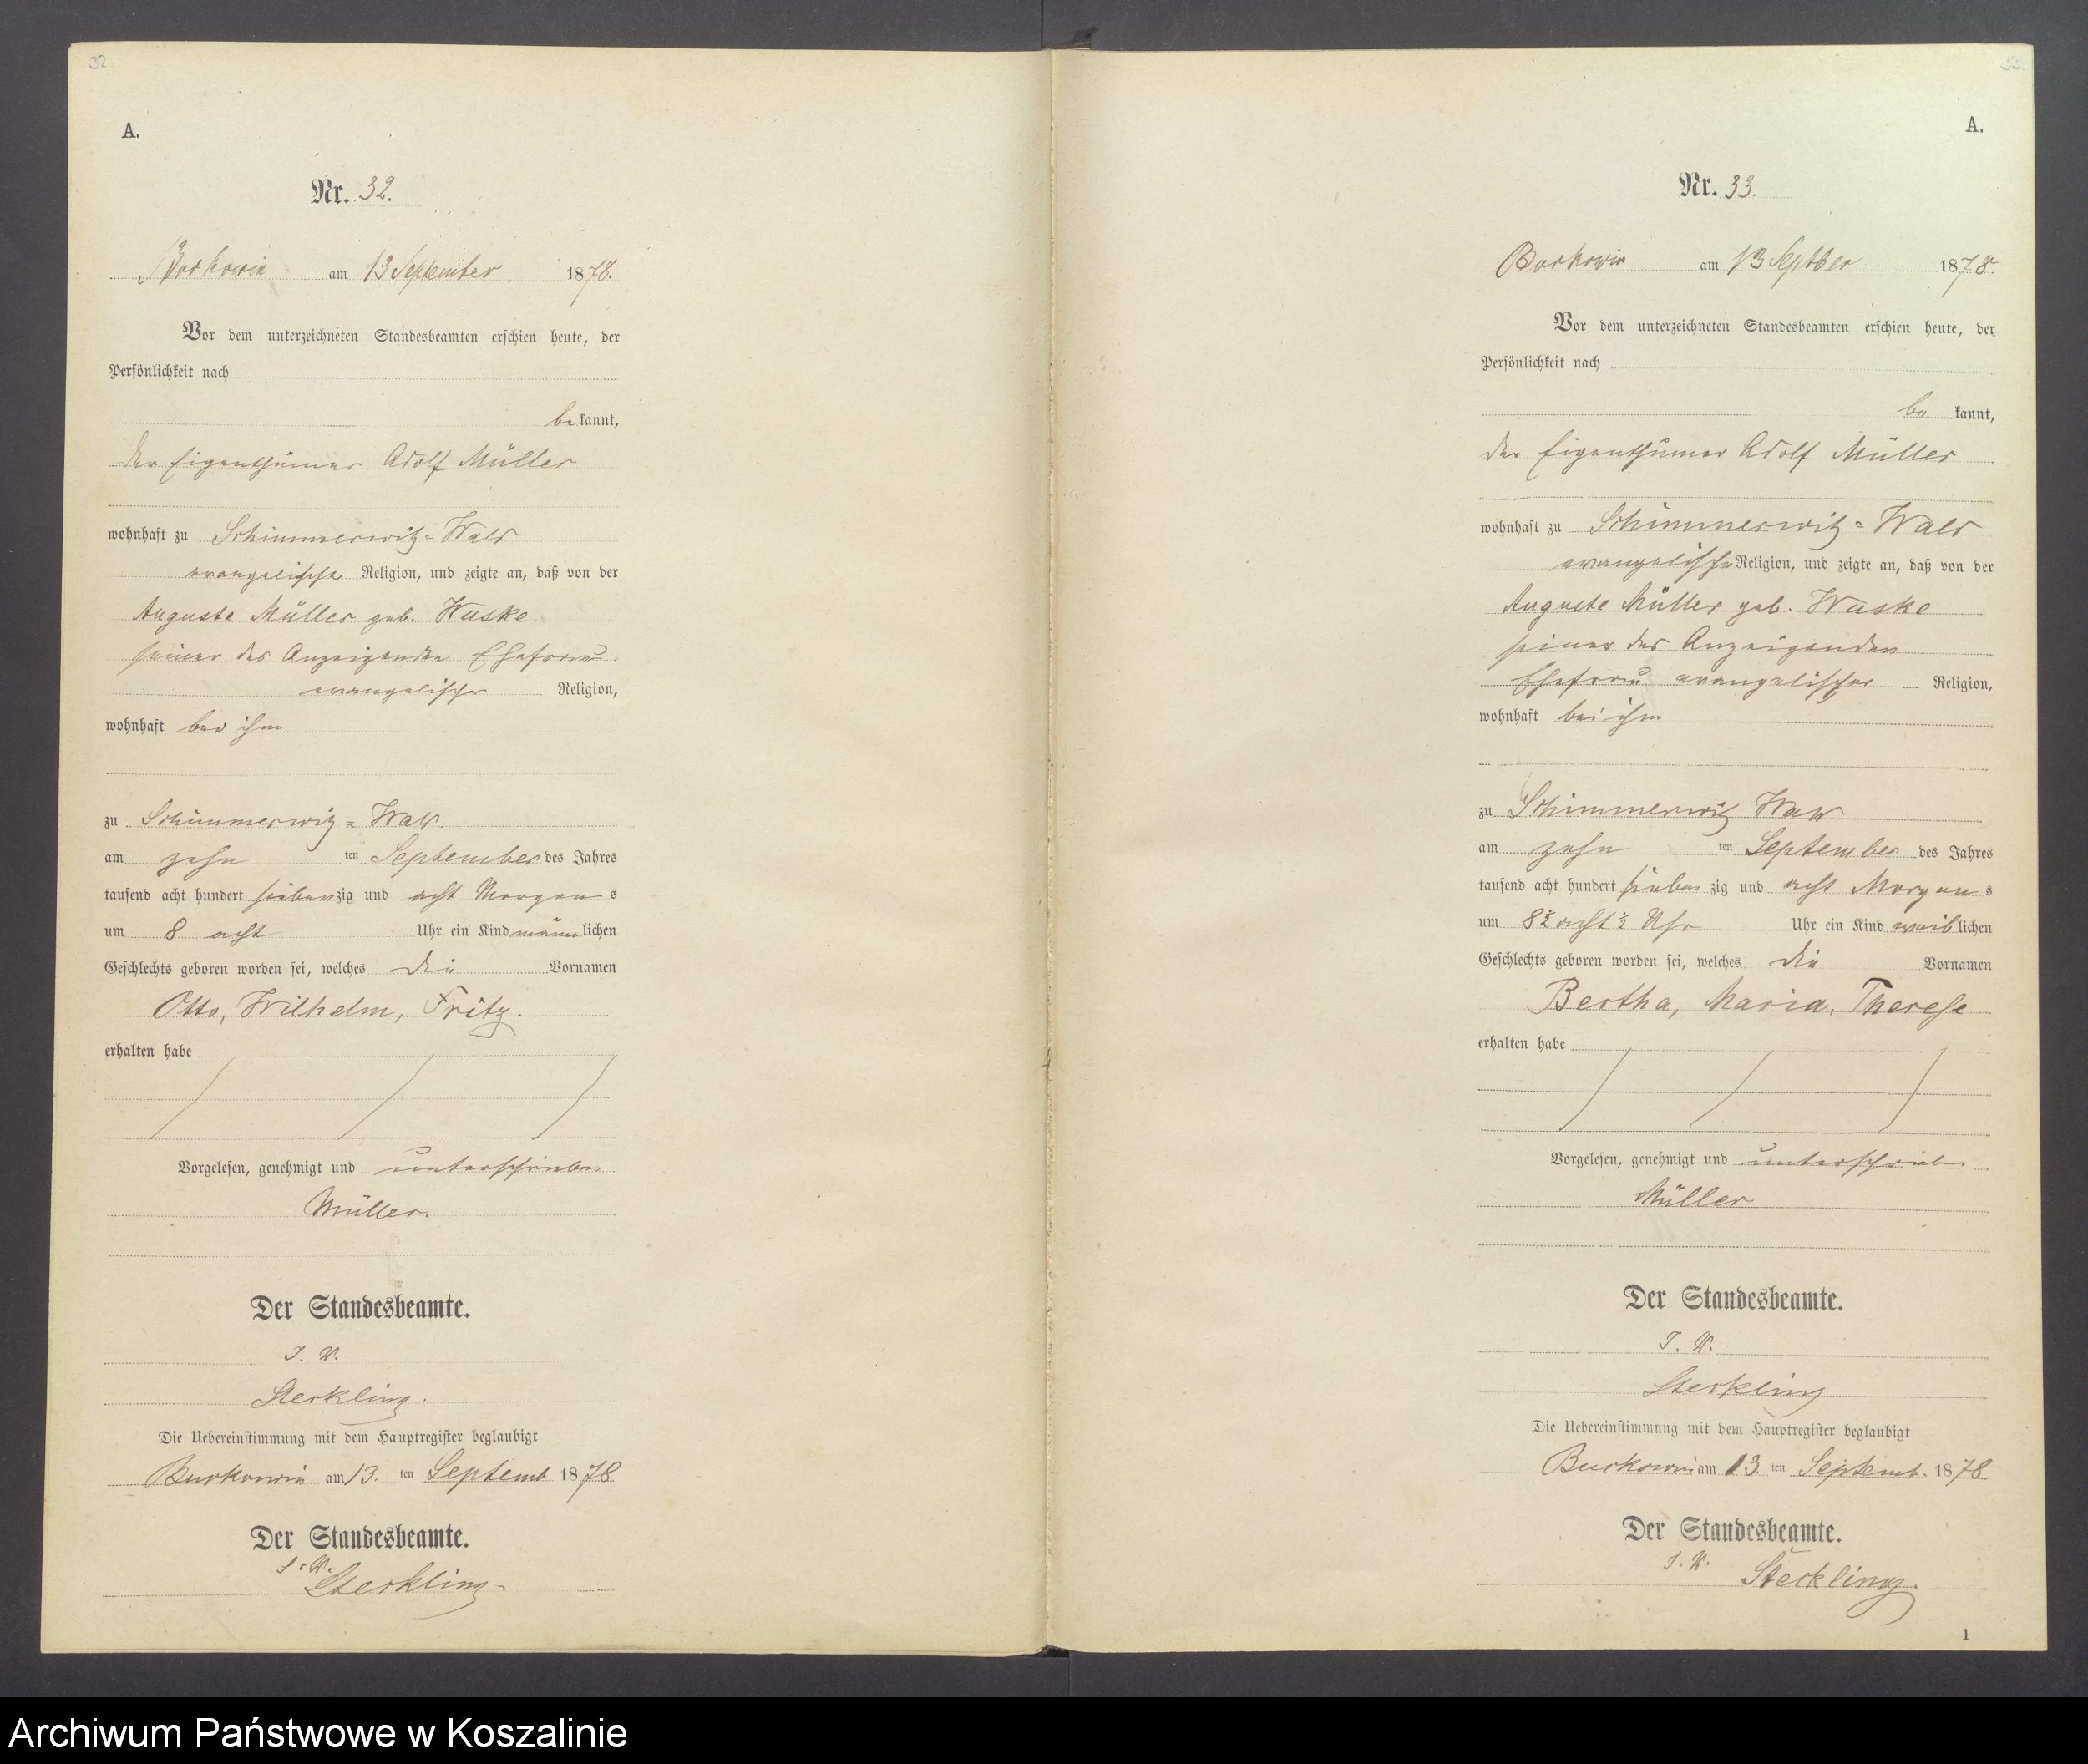 32
A.
Nr. 32.
Borkowin am 13 September 1878.
Vor dem unterzeichneten Standesbeamten erschien heute, der
Persönlichkeit nach
bekannt,
der Eigenthümer Adolf Müller
wohnhaft zu Schimmerwitz-Wald
evangelische Religion, und zeigte an, daß von der
Auguste Müller geb. Waske.
seiner des Anzeigenden Ehefrau
evangelischer Religion,
wohnhaft bei ihm
zu Schimmerwitz-Wald.
am zehn ten September des Jahres
tausend acht hundert siebenzig und acht Morgens
um 8 acht Uhr ein Kind männlichen
Geschlechts geboren worden sei, welches die Vornamen
Otto, Wilhelm, Fritz.
erhalten habe
Vorgelesen, genehmigt und unterschrieben
Müller.
Der Standesbeamte.
I. V.
Sterkling.
Die Uebereinstimmung mit dem Hauptregister beglaubigt
Burkowin am 13. ten Septemb 1878
Der Standesbeamte.
I. V.
Sterkling.
A.
Nr. 33.
Borkowin am 13 Septber 1878.
Vor dem unterzeichneten Standesbeamten erschien heute, der
Persönlichkeit nach
bekannt,
der Eigenthümer Adolf Müller
wohnhaft zu Schimmerwitz-Wald
evangelische Religion, und zeigte an, daß von der
Auguste Müller geb. Waske
seiner des Anzeigenden
Ehefrau evangelischer Religion,
wohnhaft bei ihm
zu Schimmerwitz Wald
am zehn ten September des Jahres
tausend acht hundert siebenzig und acht Morgens
um 8½ acht ½ Uhr Uhr ein Kind weiblichen
Geschlechts geboren worden sei, welches die Vornamen
Bertha, Maria, Therese
erhalten habe
Vorgelesen, genehmigt und unterschrieben
Müller
Der Standesbeamte.
I. V.
Sterkling
Die Uebereinstimmung mit dem Hauptregister beglaubigt
Burkowin am 13 ten Septemb. 1878
Der Standesbeamte.
I. V. Sterkling.
1
Archiwum Państwowe w Koszalinie